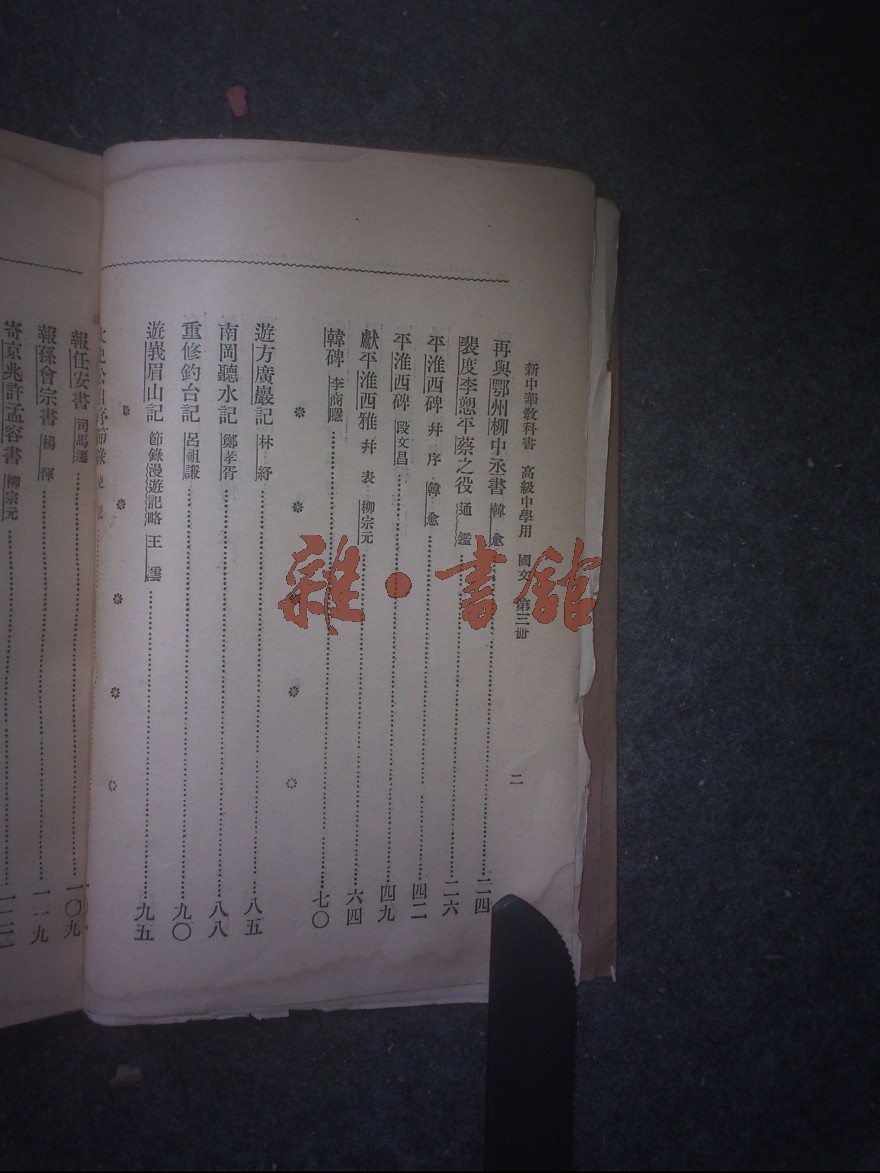 新中華教科書 高級中學用 國文 第三冊 二
再與鄂州柳中丞書 韓愈……二四
裴度李愬平蔡之役 通鑑……二六
平淮西碑 幷序 韓愈……四二
平淮西碑 段文昌……四九
獻平淮西雅 幷表 柳宗元……六四
韓碑 李商隱……七〇
遊方廣巖記 林紓……八五
南岡聽水記 鄭孝胥……八八
重修釣台記 呂祖謙……九〇
遊峩眉山記 節錄漫遊記略 王澐……九五
報任安書 司馬遷……一〇九
報孫會宗書 楊惲……一一九
寄京兆許孟容書 柳宗元
雜·書館